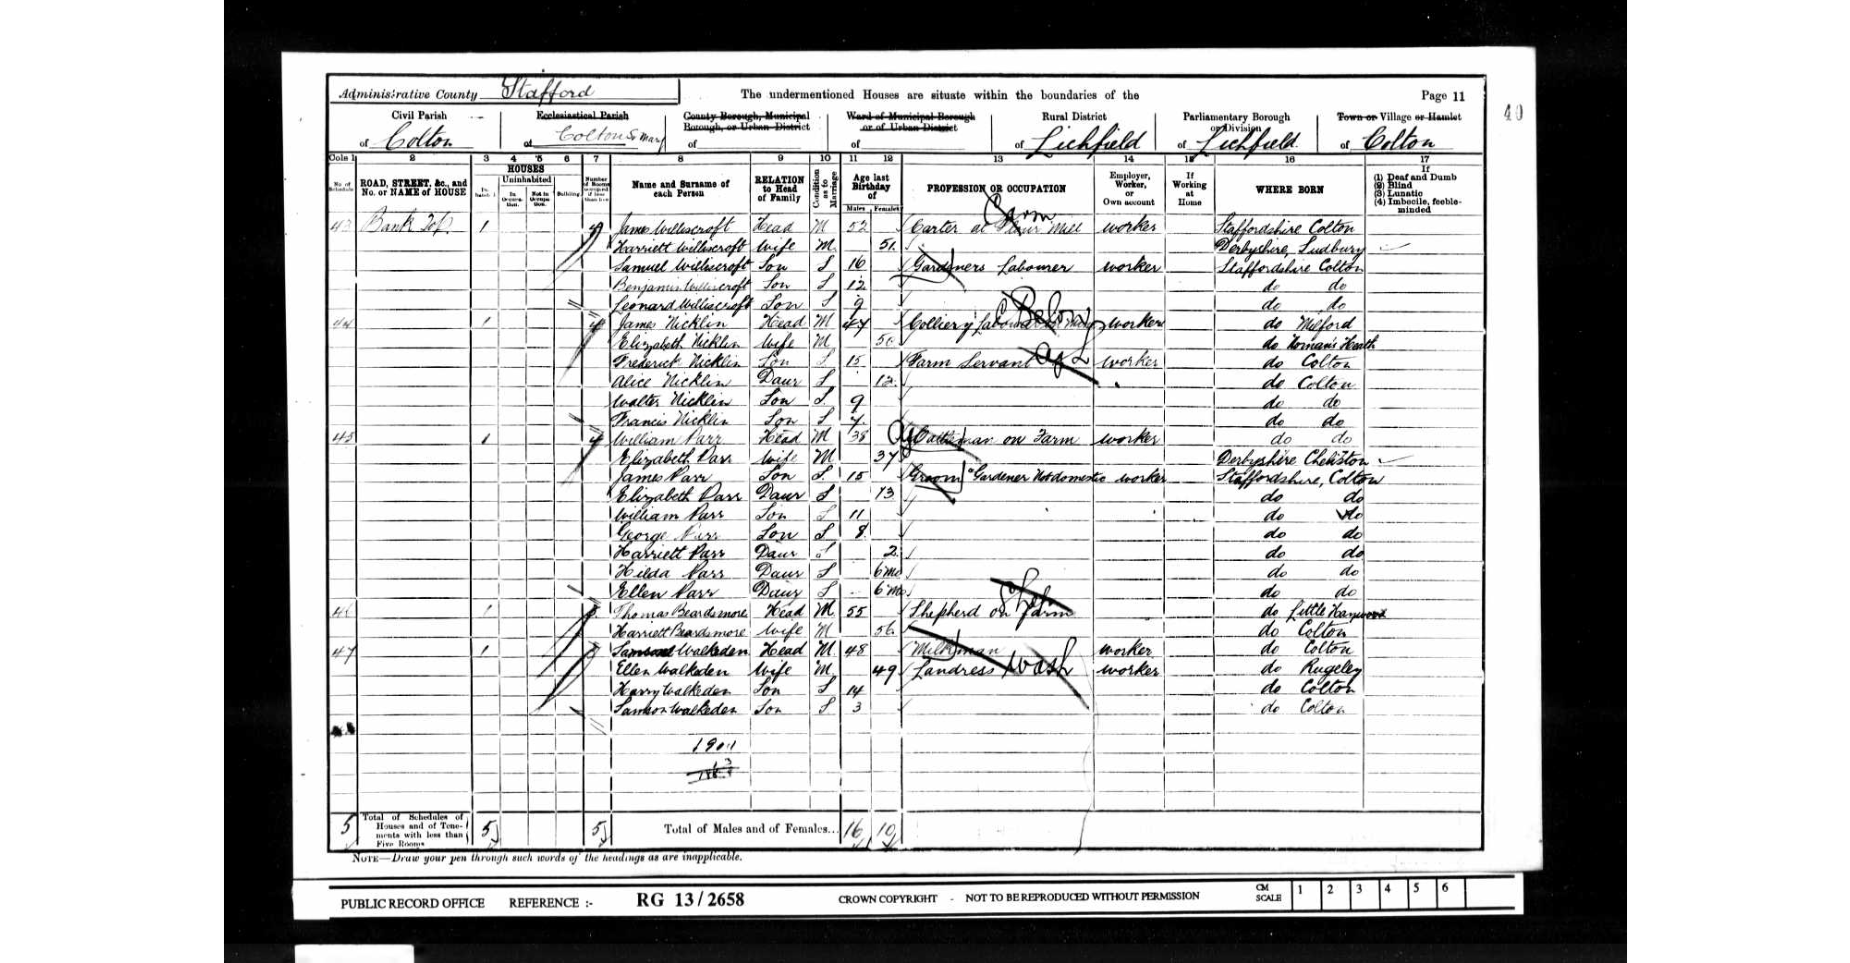 Administrative County Stafford The undermentioned Houses are situate within the boundaries of the Page 11
40
Civil Parish Ecclesiastical Parish County Borough, Municipal Borough, or Urban District Ward of Municipal Borough or of Urban District Rural District Parliamentary Borough or Division Town or Village or Hamlet
of Colton of Colton St Mary of of of Lichfield of Lichfield of Colton
Cols 1 2 3 4 5 6 7 8 9 10 11 12 13 14 15 16 17
No. of Schedule ROAD, STREET, &c., and No. or NAME of HOUSE HOUSES Inhabited Uninhabited In Occupation. Not in Occupation. Building Number of Rooms occupied if less than five Name and Surname of each Person RELATION to Head of Family Condition as to Marriage Age last Birthday of Males Females PROFESSION OR OCCUPATION Employer, Worker, or Own account If Working at Home WHERE BORN If (1) Deaf and Dumb (2) Blind (3) Lunatic (4) Imbecile, feeble-minded
43 Bank Top 1 James Williscroft Head M 52 Carter at Flour Mill Corn worker Staffordshire Colton
Harriett Williscroft Wife M 51 Derbyshire, Sudbury
Samuel Williscroft Son S 16 Gardeners Labourer worker Staffordshire Colton
Benjamin Williscroft Son S 12 do do
Leonard Williscroft Son S 9 do do
44 1 4 James Nicklin Head M 47 Colliery Labourer Below worker do Milford
Elizabeth Nicklin Wife M 50 do Norman's Heath
Frederick Nicklin Son S 15 Farm Servant Ag L worker do Colton
Alice Nicklin Daur S 12 do Colton
Walter Nicklin Son S 9 do do
Francis Nicklin Son S 7 do do
45 1 4 William Parr Head M 38 Cattleman on Farm worker do do
Elizabeth Parr Wife M 37 Derbyshire
James Parr Son S 15 Groom Gardener Not domestic worker Staffordshire, Colton
Elizabeth Parr Daur S 13 do do
William Parr Son S 11 do do
George Parr Son S 8 do do
Harriett Parr Daur S 2 do do
Hilda Parr Daur S 6 mo do do
Ellen Parr Daur S 6 mo do do
46 1 Thomas Beardsmore Head M 55 Shepherd on Farm do Little Haywood
Harriett Beardsmore Wife M 56 do Colton
47 1 Walkeden Head M 48 Milkman worker do Colton
Ellen Walkeden Wife M 49 Landress Wash worker do Rugeley
Harry Walkeden Son S 14 do Colton
Samson Walkeden Son S 3 do Colton
1901
5 Total of Schedules of Houses and of Tenements with less than Five Rooms 5 5 Total of Males and of Females... 16 10
NOTE—Draw your pen through such words of the headings as are inapplicable.
PUBLIC RECORD OFFICE REFERENCE :- RG 13/2658 CROWN COPYRIGHT - NOT TO BE REPRODUCED WITHOUT PERMISSION CM SCALE 1 2 3 4 5 6